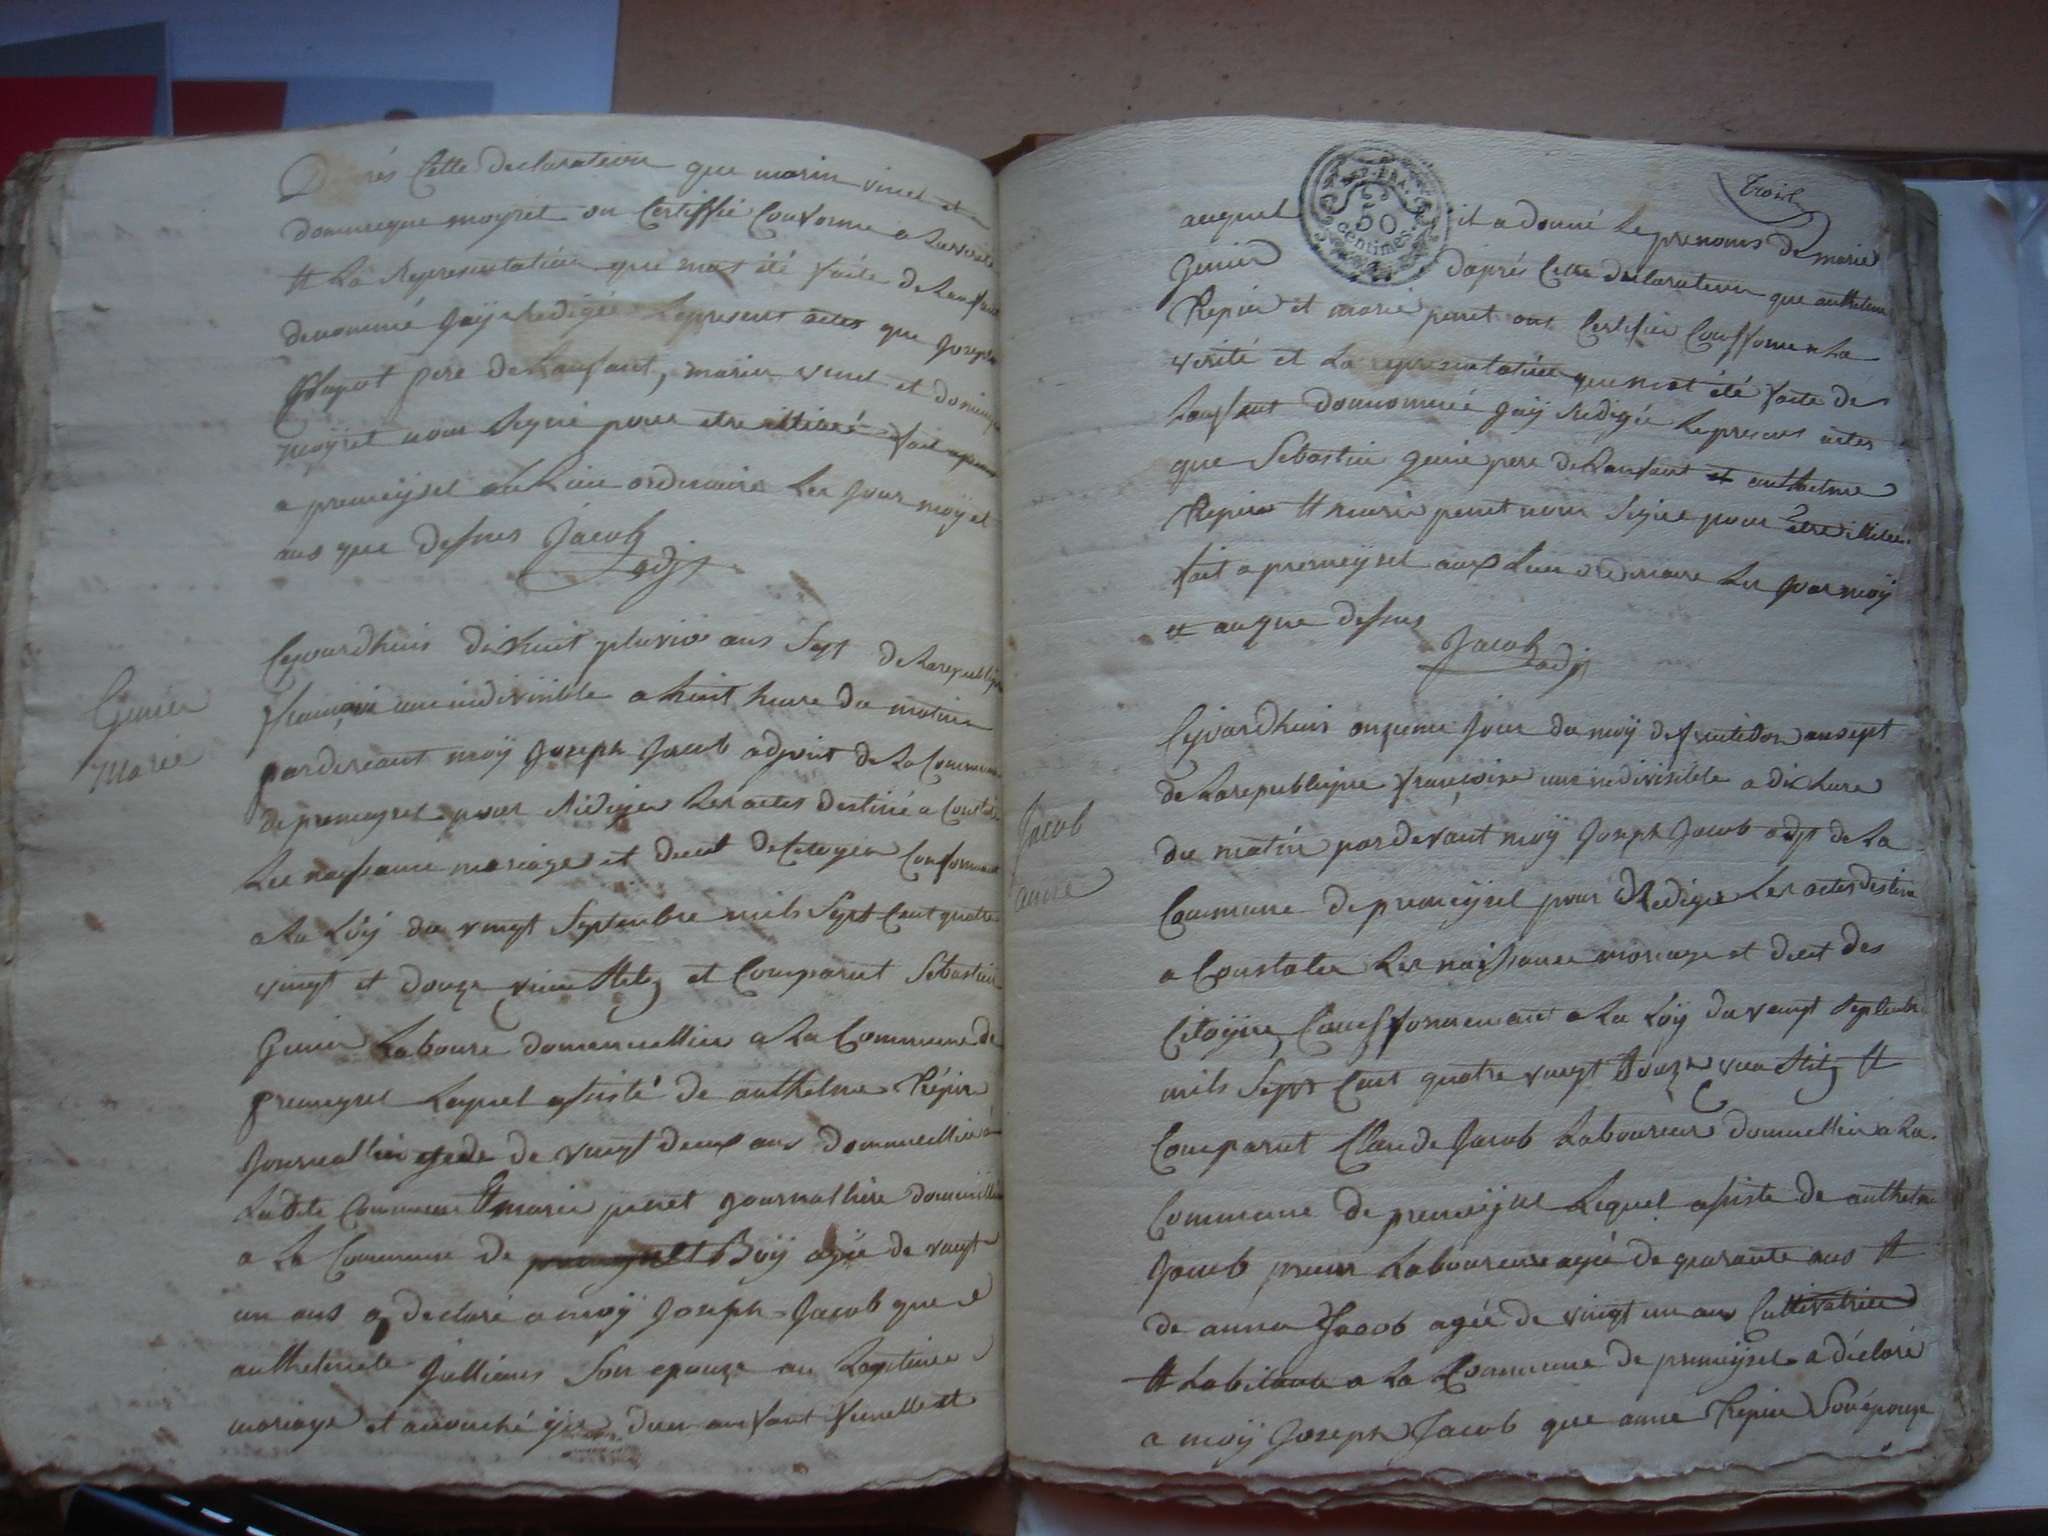 Daprés Cette declaration que marin vinet et
dominique moyret on Certiffié Conforme a la verite
et La Representation qui mat été faite de Lanfant
denommé Jaÿ Redigée Lepresens actes que Joseph
pere de Lanfant, marin vinet et dominique
moyret nom Signé pour etre ittiré fait
a premeÿsel au Lieu ordinaire Les Jour moÿ et
ans que desus Jacob
adjt
Genier
Marie
Cejourdhuis dixhuit pluvio ans Sept de Larepublique
francoise une indivisible a huit heure du matin
pardevant moÿ Joseph Jacob adjoint de La Commune
de premeysel pour Rédiger Les actes destiné a Constater
Les naissance mariage et decet de Citoyen Conformement
a La Loÿ du vingt Septembre mils Sept Cent quatre
vingt et douze vieu Stile et Comparut Sebastien
Genier Laboure domemiellier a La Commune de
premeysel Lequel asisté de anthelme Répin
Journallier agede de vingt deux ans domimiellier a
Ladite Commune Et marie peret Journallière
a La Commune de Boÿ agée de vingt
un ans a declaré a moÿ Joseph Jacob que
anthelmete Jullians Son epouze au Legitime
mariage et acouché d'un anfant femelle et
trois
auquel il a donné Le prenoms de marie
Genier daprés Cette declaration que anthelme
Repin et marie peret ont Certifier Conforme a La
verité et La representation que mat été faite de
Lanfant donnommée Jaÿ Redigée Lepresens actes
que Sebastien Genie pere de Lanfant et anthelme
Repin et marie peret nom Signe pour etre
fait a premeÿsel aux Lieu ordinaire Les Jour moÿ
et an que desus
Jacob
adjt
Jacob
anne
Cejourdhuis onzieme Jour du moÿ de fruitidor an sept
de Larepublique francoise une indivisible a dix hure
du matin pardevant moÿ Joseph Jacob adjt de La
Commune de premeÿsel pour Rediger Les actes destine
a Constater Les naissance mariage et decet des
Citoÿen Confformement a La Loÿ du vingt septembre
mils Sept Cent quatre vingt Douze vieu Stile et
Comparut Claude Jacob Laboureur domiellier a La
Commune de premeÿsel Lequel asiste de anthelme
Jacob Laboureur agée de quarante ans et
de anne Jacob agée de vingt un ans Cultivatrice
et habitant a La Commune de premeÿsel a décloré
a moÿ Joseph Jacob que anne Repin Son épouze
50
centimes